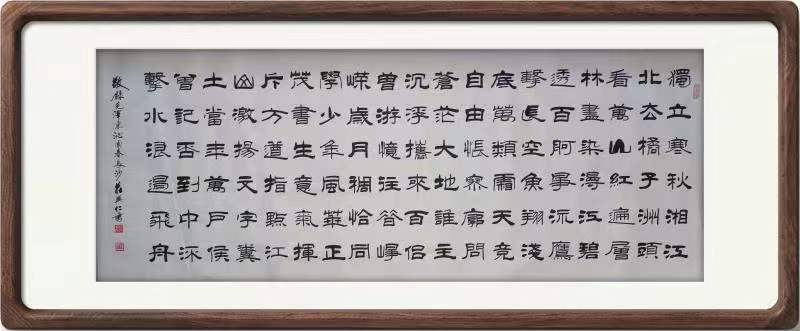 獨立寒秋湘江
北去橘子洲頭
看萬山紅遍層
林盡染漫江碧
透百舸爭流鷹
擊長空魚翔淺
底萬類霜天競
自由悵寥廓問
蒼茫大地誰主
沉浮攜來百侣
曾游憶往昔崢
嶸歲月稠恰同
學少年風華正
茂書生意氣揮
斥方遒指點江
山激揚文字糞
土當年萬戶侯
曾記否到中流
擊水浪遏飛舟
敬錄毛澤東沁園春長沙 仁書